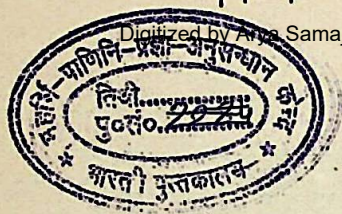 Digitized by Arya Samaj
महर्षि-पाणिनि-प्रज्ञा-अनुसन्धान केन्द्र
तिथी..............
पु०सं०..............
भारती पुस्तकालय